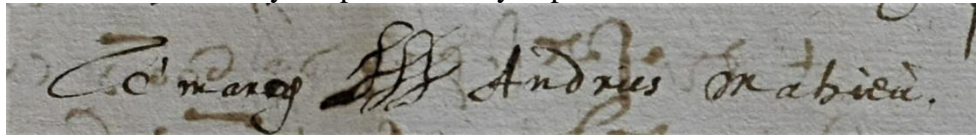 Le marcq Andrius Mahieu.